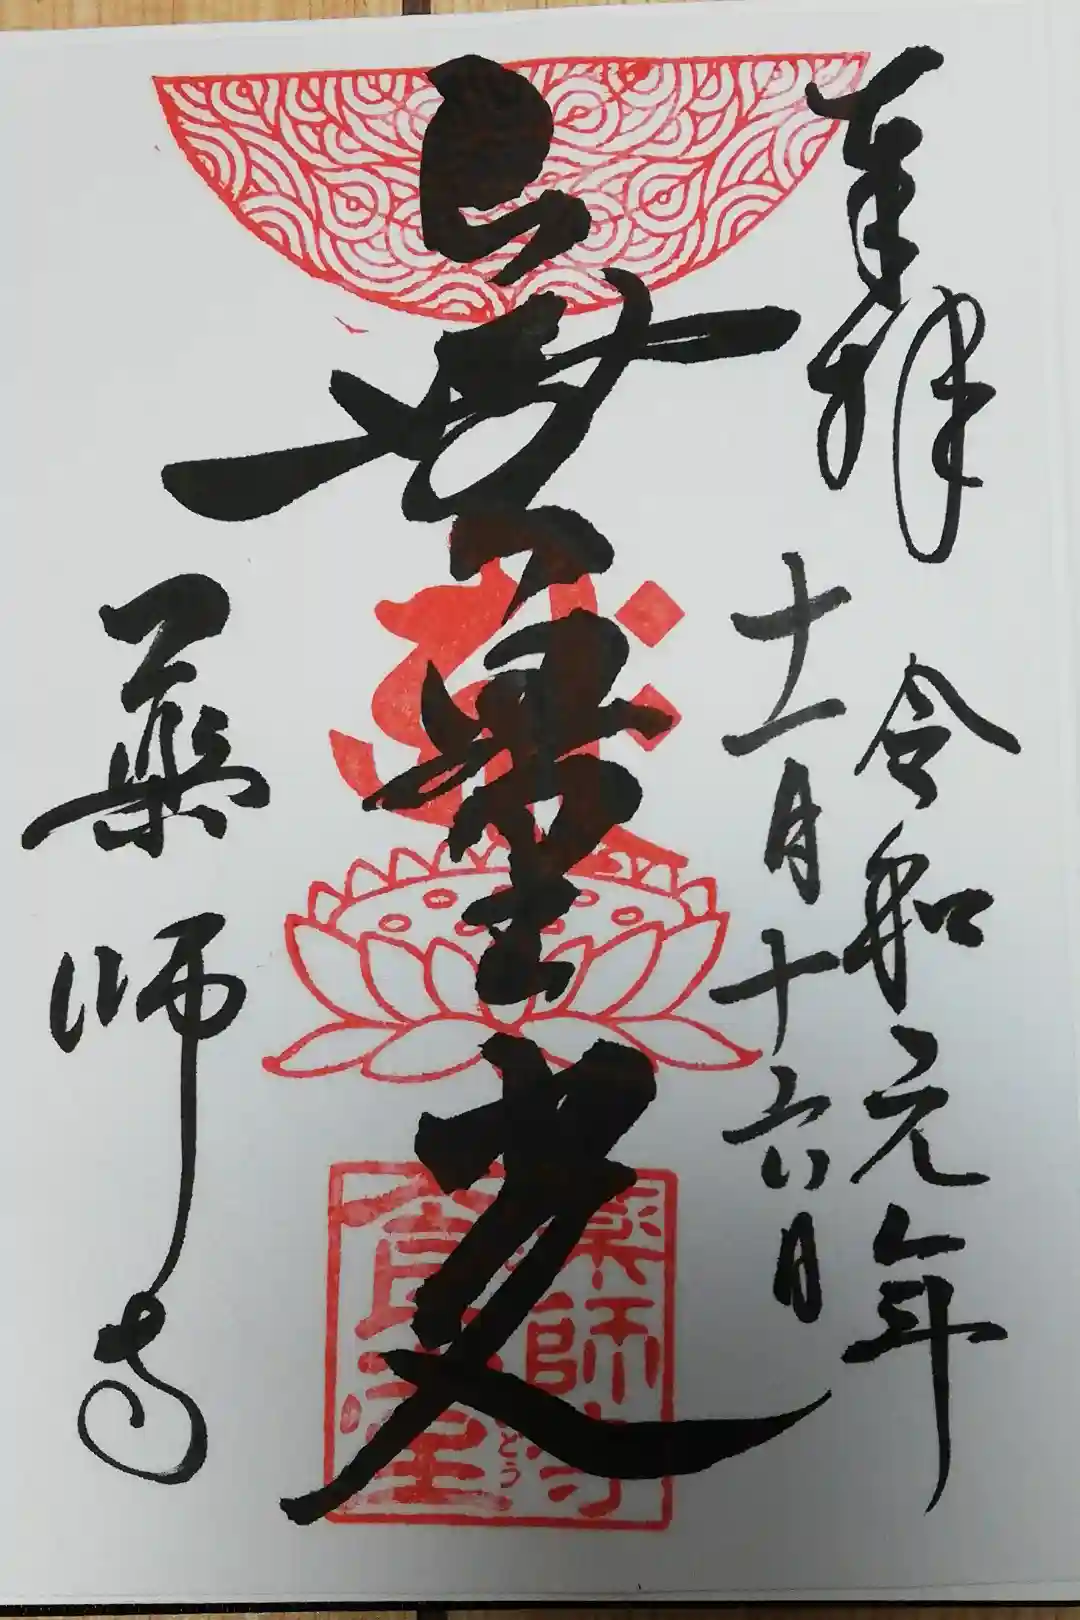 奉拝
令和元年
十一月十六日
無量光
薬師寺
薬師寺
食堂
どう